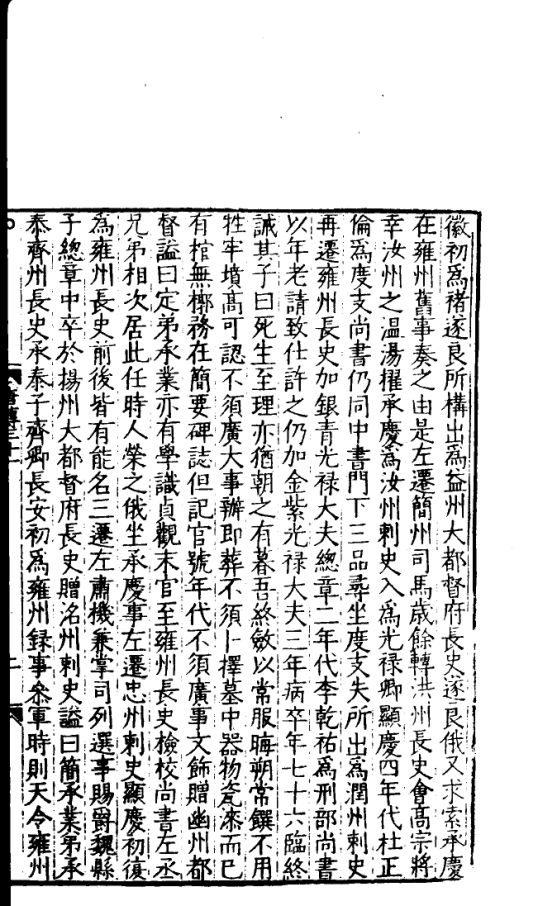 徽初爲褚遂良所構出爲益州大都督府長史遂良俄又求索承慶
在雍州舊事奏之由是左遷簡州司馬歳餘轉洪州長史會髙宗將
幸汝州之温湯擢承慶爲汝州刺史入爲光禄卿顯慶四年代杜正
倫爲度支尚書仍同中書門下三品尋坐度支失所出爲潤州刺史
再遷雍州長史加銀青光禄大夫總章二年代李乾祐爲刑部尚書
以年老請致仕許之仍加金紫光禄大夫三年病卒年七十六臨終
誡其子曰死生至理亦猶朝之有暮吾終斂以常服晦朔常饌不用
牲牢墳髙可認不須廣大事辦即葬不須卜擇墓中器物瓷漆而已
有棺無槨務在簡要碑誌但記官號年代不須廣事文飾贈幽州都
督謚曰定弟承業亦有學識貞觀末官至雍州長史檢校尚書左丞
兄弟相次居此任時人榮之俄坐承慶事左遷忠州刺史顯慶初復
爲雍州長史前後皆有能名三遷左肅機兼掌司列選事賜爵魏縣
子總章中卒於揚州大都督府長史贈洺州刺史謚曰簡承業弟承
泰齊州長史承泰子齊卿長安初爲雍州録事叅軍時則天令雍州